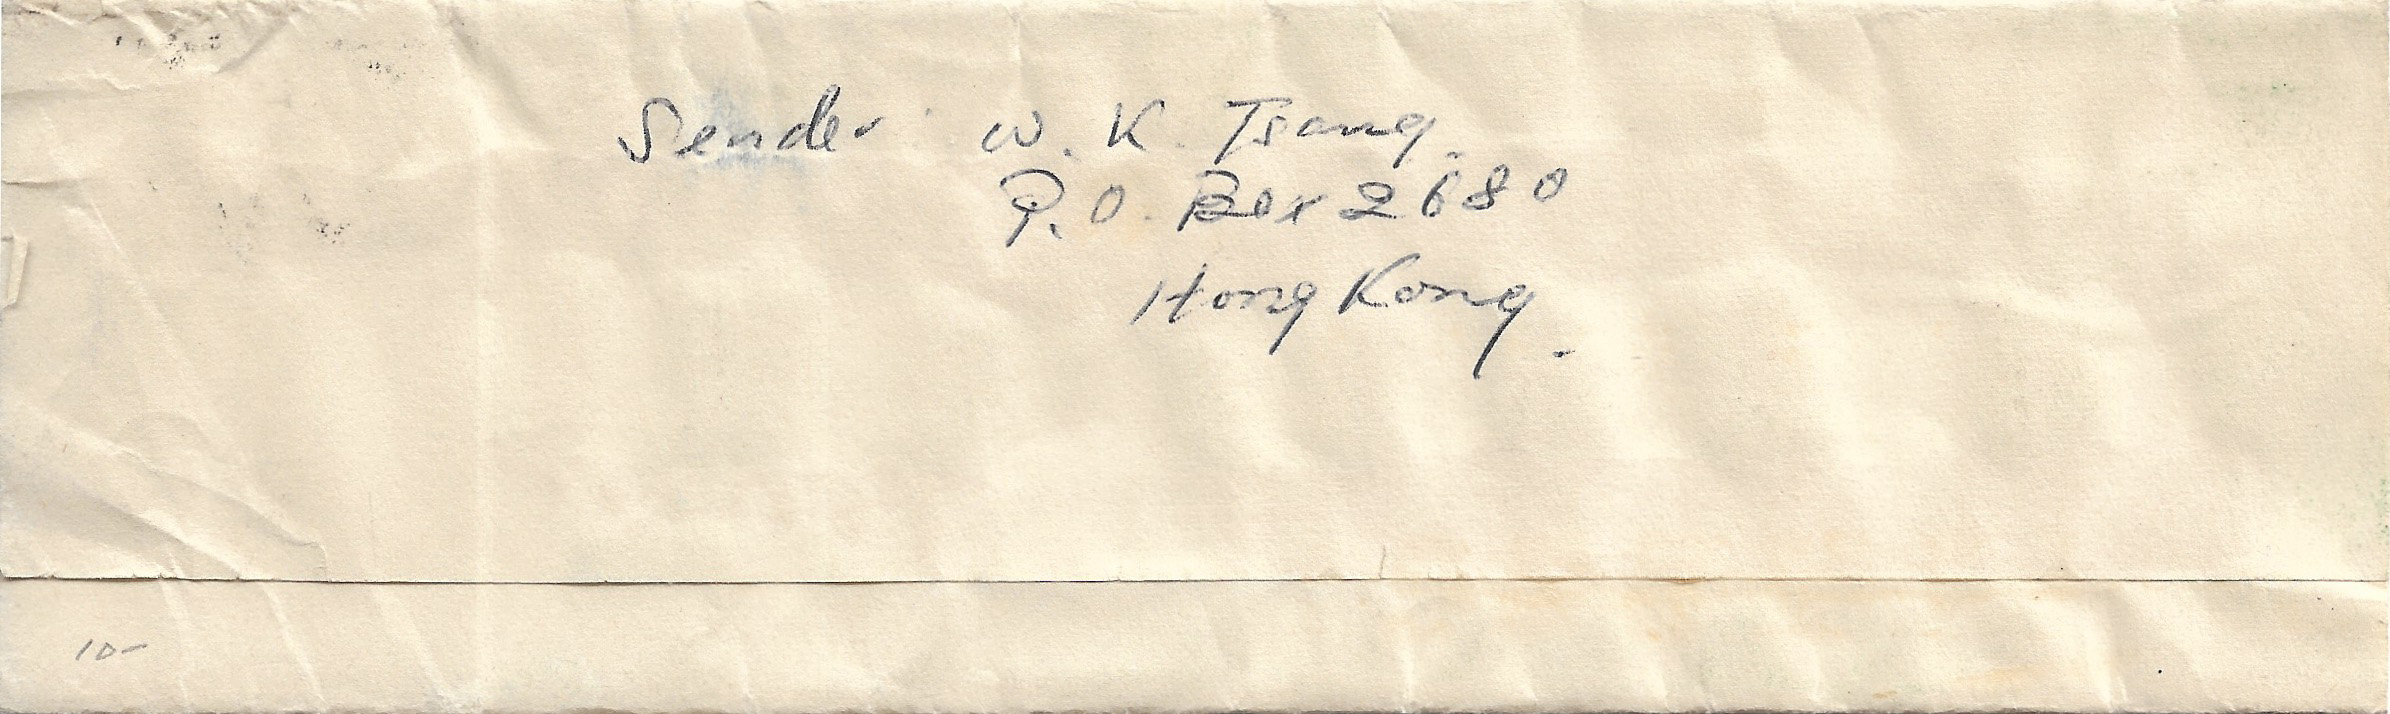 Sender W. K. Tsang.
P.O. Box 2680
Hong Kong.
10-